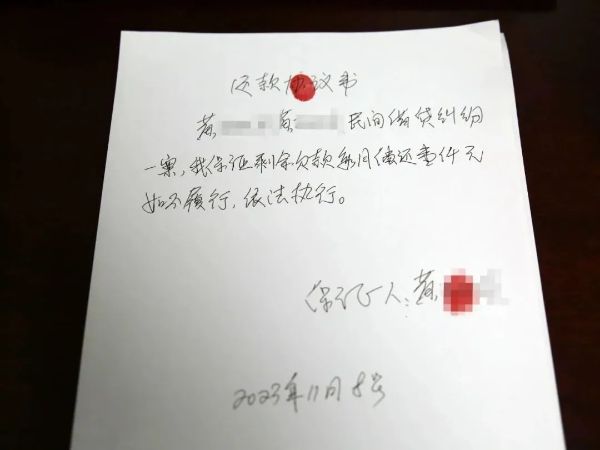 还款协议书
黄 与 民间借贷纠纷
一案,我保证剩余欠款每月偿还壹仟元
如不履行,依法执行。
保证人:黄
2023年11月8号